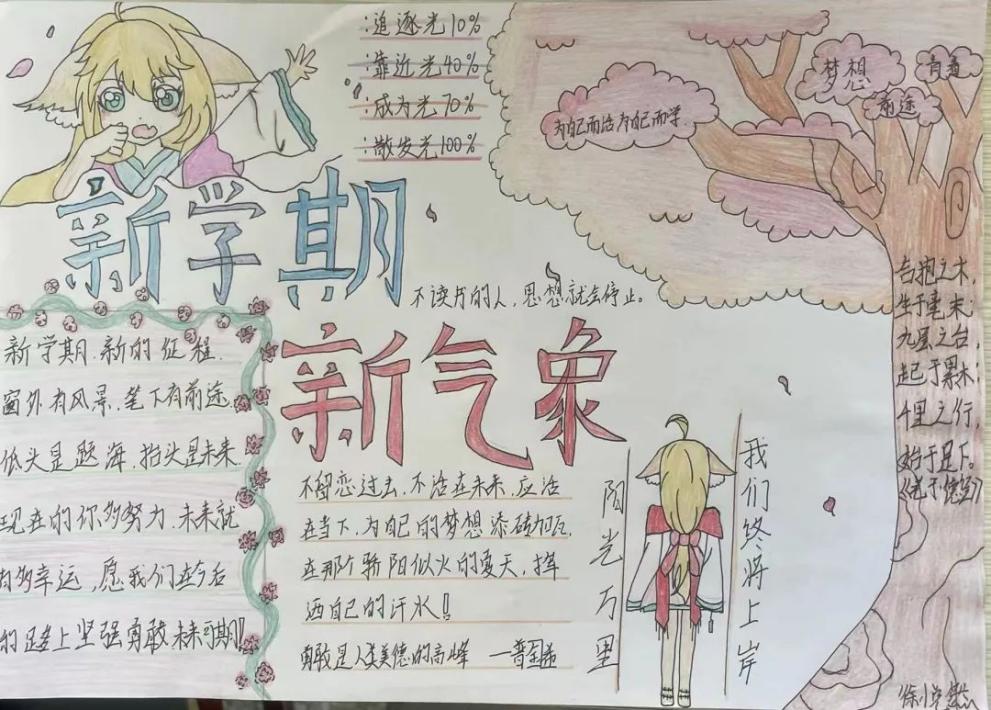 :追逐光10%
:靠近光40%
:成为光70%
:散发光100%
为自己而活为自己而学
梦想
青春
前途
新学期
不读书的人,思想就会停止。
新学期.新的征程.
窗外有风景.笔下有前途.
低头是题海.抬头是未来.
现在的你多努力.未来就
有多幸运,愿我们在今后
的足路上坚强勇敢未来可期!
新气象
不留恋过去.不活在未来.应活
在当下.为自己的梦想添砖加瓦.
在那个骄阳似火的夏天,挥
洒自己的汗水!
勇敢是人类美德的高峰 —普希
阳光万里
我们终将上岸
合抱之木,
生于毫末;
九层之台,
起于累木;
千里之行,
始于足下。
《老子
徐